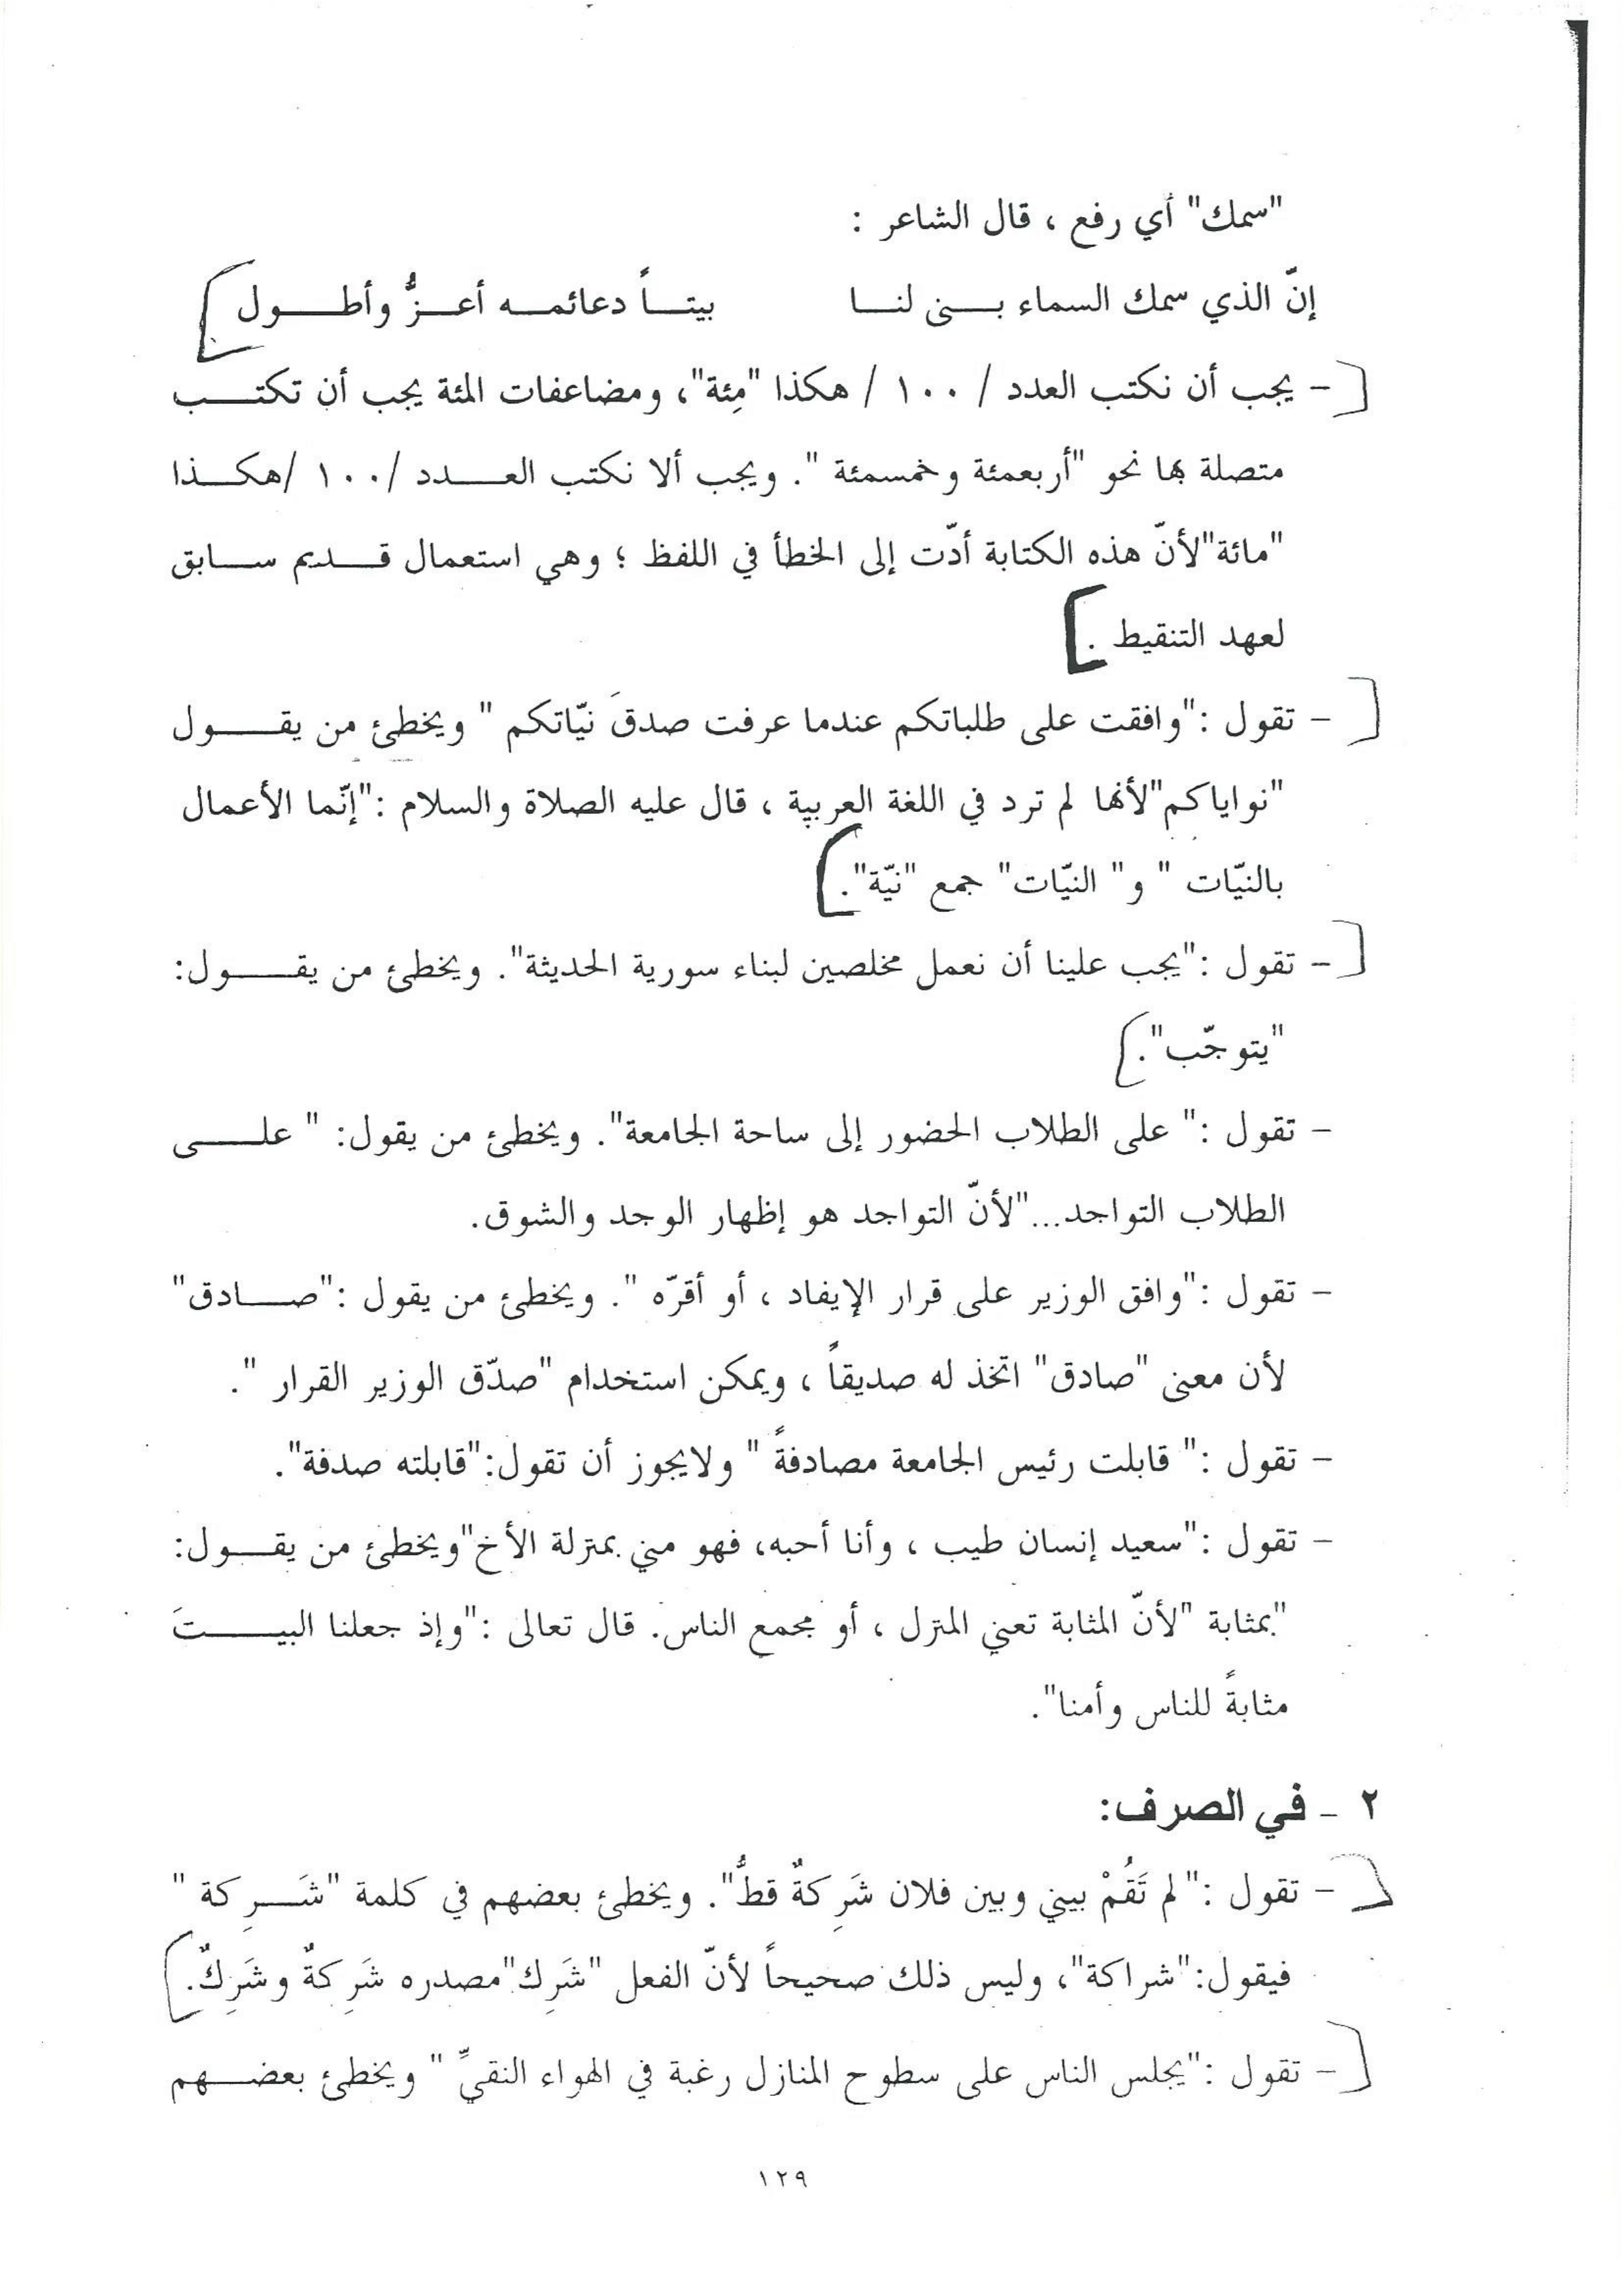 "سمك" أي رفع ، قال الشاعر :
إنّ الذي سمك السماء بنى لنا بيتاً دعائمه أعزُّ وأطول
- يجب أن نكتب العدد / ١٠٠ / هكذا "مِئة"، ومضاعفات المئة يجب أن تكتب
متصلة بها نحو "أربعمئة وخمسمئة ". ويجب ألا نكتب العدد /١٠٠ /هكذا
"مائة"لأنّ هذه الكتابة أدّت إلى الخطأ في اللفظ ؛ وهي استعمال قديم سابق
لعهد التنقيط .
- تقول :"وافقت على طلباتكم عندما عرفت صدقَ نيّاتكم " ويخطئ من يقول
"نواياكم"لأنها لم ترد في اللغة العربية ، قال عليه الصلاة والسلام :"إنّما الأعمال
بالنيّات " و" النيّات" جمع "نيّة".
- تقول :"يجب علينا أن نعمل مخلصين لبناء سورية الحديثة". ويخطئ من يقول:
"يتوجّب".
- تقول :" على الطلاب الحضور إلى ساحة الجامعة". ويخطئ من يقول: " على
الطلاب التواجد..."لأنّ التواجد هو إظهار الوجد والشوق.
- تقول :"وافق الوزير على قرار الإيفاد ، أو أقرّه ". ويخطئ من يقول :"صادق"
لأن معنى "صادق" اتخذ له صديقاً ، ويمكن استخدام "صدّق الوزير القرار ".
- تقول :" قابلت رئيس الجامعة مصادفةً " ولايجوز أن تقول:"قابلته صدفة".
- تقول :"سعيد إنسان طيب ، وأنا أحبه، فهو مني بمنزلة الأخ"ويخطئ من يقول:
"بمثابة "لأنّ المثابة تعني المنزل ، أو مجمع الناس. قال تعالى :"وإذ جعلنا البيتَ
مثابةً للناس وأمنا".
٢ - في الصرف:
- تقول :" لم تَقُمْ بيني وبين فلان شَرِكةٌ قطُّ". ويخطئ بعضهم في كلمة "شَرِكة "
فيقول:"شراكة"، وليس ذلك صحيحاً لأنّ الفعل "شَرِك"مصدره شَرِكةٌ وشَرِكٌ.
- تقول :"يجلس الناس على سطوح المنازل رغبة في الهواء النقيِّ " ويخطئ بعضهم
١٢٩